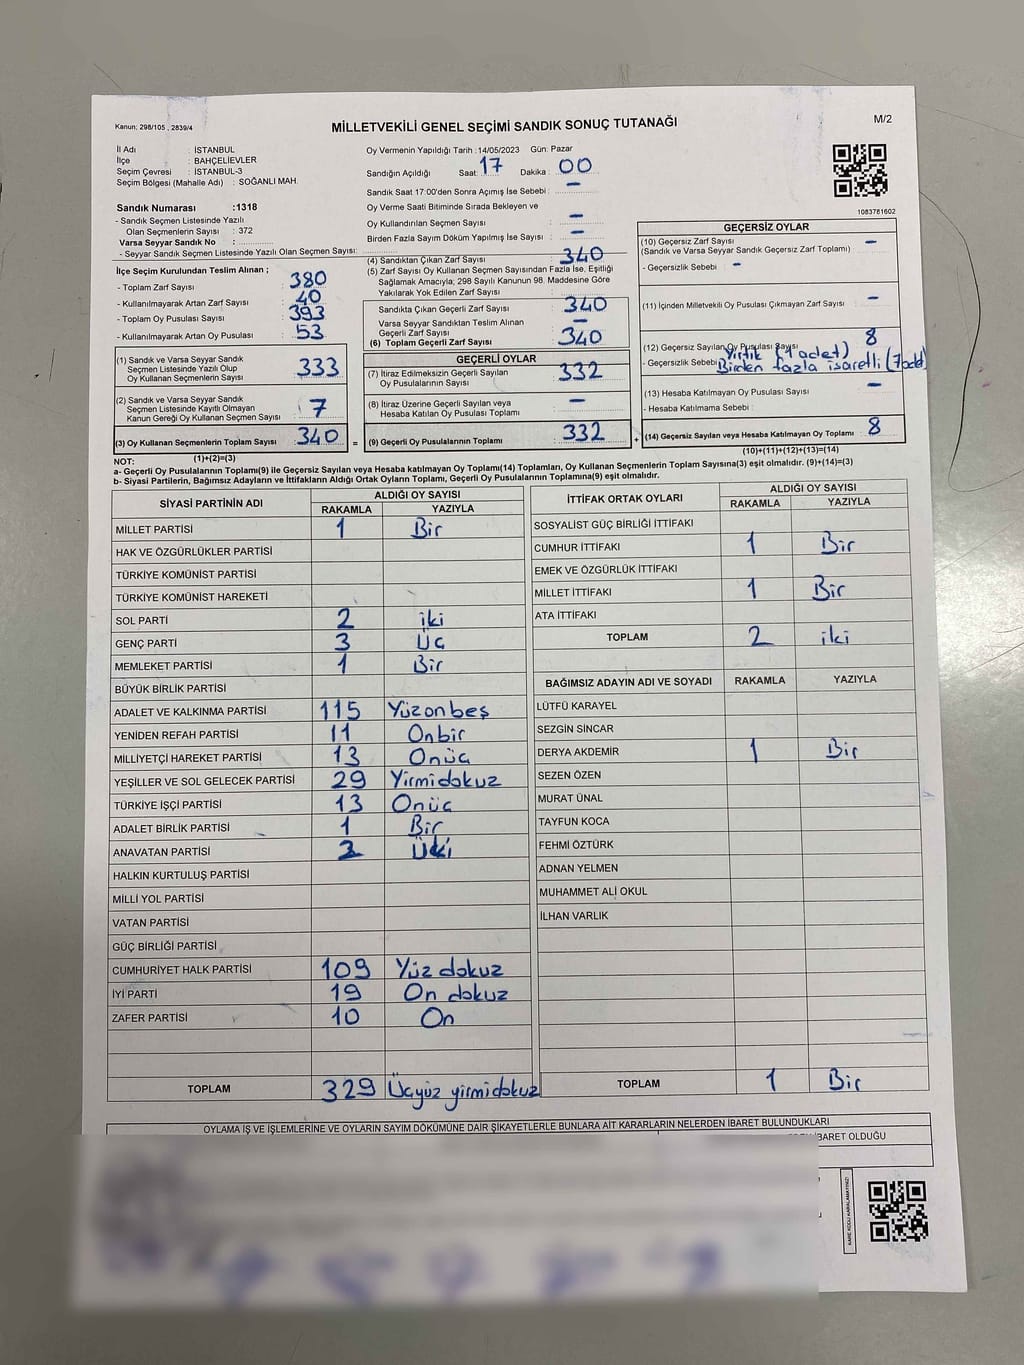 Kanun; 298/105 , 2839/4
MİLLETVEKİLİ GENEL SEÇİMİ SANDIK SONUÇ TUTANAĞI
M/2
İl Adı : İSTANBUL
İlçe : BAHÇELİEVLER
Seçim Çevresi : İSTANBUL-3
Seçim Bölgesi (Mahalle Adı) : SOĞANLI MAH.
Oy Vermenin Yapıldığı Tarih :14/05/2023 Gün: Pazar
Sandığın Açıldığı Saat: 17 Dakika : 00
Sandık Saat 17:00'den Sonra Açımış İse Sebebi : -
Oy Verme Saati Bitiminde Sırada Bekleyen ve
Oy Kullandırılan Seçmen Sayısı : -
Birden Fazla Sayım Döküm Yapılmış İse Sayısı : -
1083781602
Sandık Numarası :1318
- Sandık Seçmen Listesinde Yazılı
Olan Seçmenlerin Sayısı : 372
Varsa Seyyar Sandık No :
- Seyyar Sandık Seçmen Listesinde Yazılı Olan Seçmen Sayısı:
İlçe Seçim Kurulundan Teslim Alınan ;
- Toplam Zarf Sayısı : 380
- Kullanılmayarak Artan Zarf Sayısı : 40
- Toplam Oy Pusulası Sayısı : 393
- Kullanılmayarak Artan Oy Pusulası : 53
(1) Sandık ve Varsa Seyyar Sandık
Seçmen Listesinde Yazılı Olup
Oy Kullanan Seçmenlerin Sayısı : 333
(2) Sandık ve Varsa Seyyar Sandık
Seçmen Listesinde Kayıtlı Olmayan
Kanun Gereği Oy Kullanan Seçmen Sayısı : 7
(3) Oy Kullanan Seçmenlerin Toplam Sayısı : 340 =
(1)+(2)=(3)
(4) Sandıktan Çıkan Zarf Sayısı : 340
(5) Zarf Sayısı Oy Kullanan Seçmen Sayısından Fazla İse, Eşitliği
Sağlamak Amacıyla; 298 Sayılı Kanunun 98. Maddesine Göre
Yakılarak Yok Edilen Zarf Sayısı :
Sandıkta Çıkan Geçerli Zarf Sayısı : 340
Varsa Seyyar Sandıktan Teslim Alınan
Geçerli Zarf Sayısı : -
(6) Toplam Geçerli Zarf Sayısı : 340
GEÇERLİ OYLAR
(7) İtiraz Edilmeksizin Geçerli Sayılan
Oy Pusulalarının Sayısı : 332
(8) İtiraz Üzerine Geçerli Sayılan veya
Hesaba Katılan Oy Pusulası Toplamı : -
(9) Geçerli Oy Pusulalarının Toplamı : 332 +
GEÇERSİZ OYLAR
(10) Geçersiz Zarf Sayısı : -
(Sandık ve Varsa Seyyar Sandık Geçersiz Zarf Toplamı)
- Geçersizlik Sebebi : -
(11) İçinden Milletvekili Oy Pusulası Çıkmayan Zarf Sayısı : -
(12) Geçersiz Sayılan Oy Pusulası Sayısı : 8
- Geçersizlik Sebebi : Yırtık (1 adet)
Birden fazla işaretli (7 add)
(13) Hesaba Katılmayan Oy Pusulası Sayısı : -
- Hesaba Katılmama Sebebi :
(14) Geçersiz Sayılan veya Hesaba Katılmayan Oy Toplamı : 8
(10)+(11)+(12)+(13)=(14)
NOT:
a- Geçerli Oy Pusulalarının Toplamı(9) ile Geçersiz Sayılan veya Hesaba katılmayan Oy Toplamı(14) Toplamları, Oy Kullanan Seçmenlerin Toplam Sayısına(3) eşit olmalıdır. (9)+(14)=(3)
b- Siyasi Partilerin, Bağımsız Adayların ve İttifakların Aldığı Ortak Oyların Toplamı, Geçerli Oy Pusulalarının Toplamına(9) eşit olmalıdır.
SİYASİ PARTİNİN ADI ALDIĞI OY SAYISI
RAKAMLA YAZIYLA
MİLLET PARTİSİ 1 Bir
HAK VE ÖZGÜRLÜKLER PARTİSİ
TÜRKİYE KOMÜNİST PARTİSİ
TÜRKİYE KOMÜNİST HAREKETİ
SOL PARTİ 2 iki
GENÇ PARTİ 3 Üç
MEMLEKET PARTİSİ 1 Bir
BÜYÜK BİRLİK PARTİSİ
ADALET VE KALKINMA PARTİSİ 115 Yüzonbeş
YENİDEN REFAH PARTİSİ 11 Onbir
MİLLİYETÇİ HAREKET PARTİSİ 13 Onüç
YEŞİLLER VE SOL GELECEK PARTİSİ 29 Yirmidokuz
TÜRKİYE İŞÇİ PARTİSİ 13 Onüç
ADALET BİRLİK PARTİSİ 1 Bir
ANAVATAN PARTİSİ
HALKIN KURTULUŞ PARTİSİ
MİLLİ YOL PARTİSİ
VATAN PARTİSİ
GÜÇ BİRLİĞİ PARTİSİ
CUMHURİYET HALK PARTİSİ 109 Yüz dokuz
İYİ PARTİ 19 On dokuz
ZAFER PARTİSİ 10 On
TOPLAM 329 Üçyüz yirmidokuz
İTTİFAK ORTAK OYLARI ALDIĞI OY SAYISI
RAKAMLA YAZIYLA
SOSYALİST GÜÇ BİRLİĞİ İTTİFAKI
CUMHUR İTTİFAKI 1 Bir
EMEK VE ÖZGÜRLÜK İTTİFAKI
MİLLET İTTİFAKI 1 Bir
ATA İTTİFAKI
TOPLAM 2 iki
BAĞIMSIZ ADAYIN ADI VE SOYADI RAKAMLA YAZIYLA
LÜTFÜ KARAYEL
SEZGİN SİNCAR
DERYA AKDEMİR 1 Bir
SEZEN ÖZEN
MURAT ÜNAL
TAYFUN KOCA
FEHMİ ÖZTÜRK
ADNAN YELMEN
MUHAMMET ALİ OKUL
İLHAN VARLIK
TOPLAM 1 Bir
OYLAMA İŞ VE İŞLEMLERİNE VE OYLARIN SAYIM DÖKÜMÜNE DAİR ŞİKAYETLERLE BUNLARA AİT KARARLARIN NELERDEN İBARET BULUNDUKLARI
İBARET OLDUĞU
KARE KODU KARALAMAYINIZ!